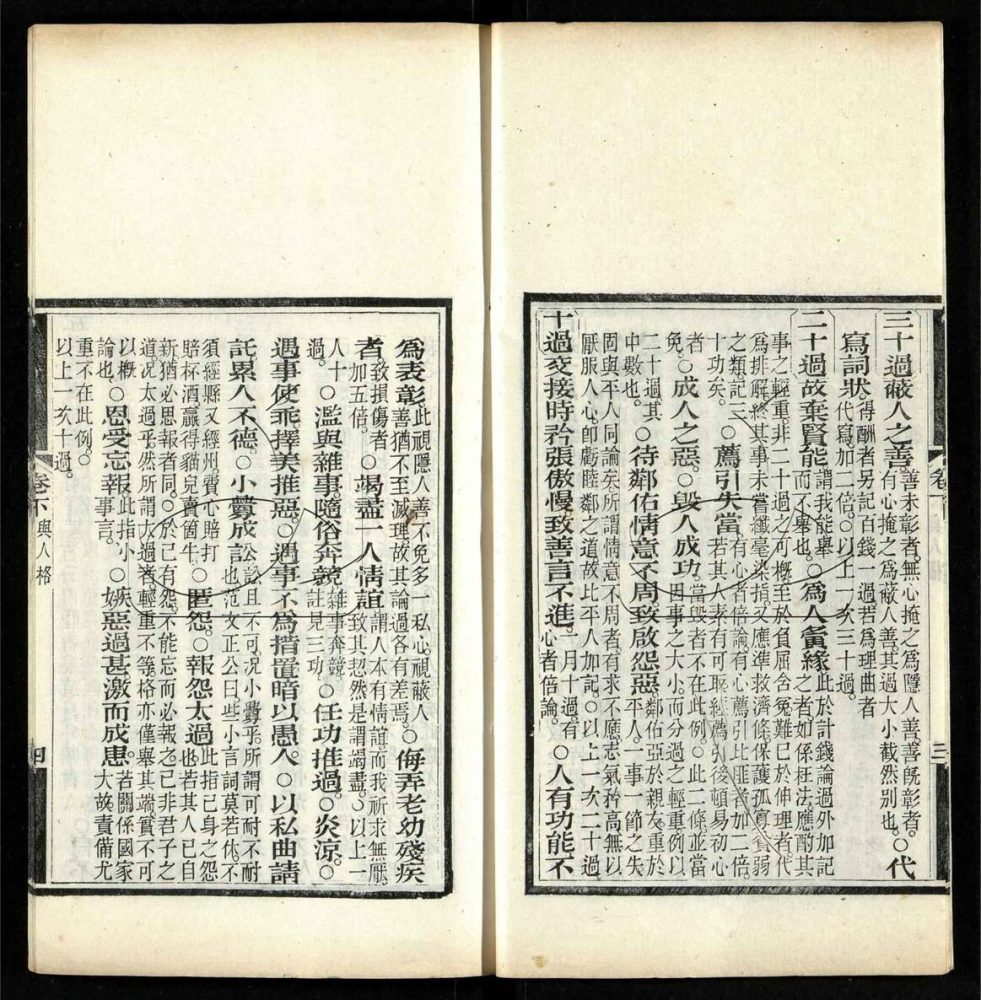 三十過蔽人之善善未彰者。無心掩之爲隱人善。善旣彰者。有心掩之爲蔽人善。其過大小截然別也。○代
寫詞狀。得酬者另記百錢一過。若爲理曲者代寫加二倍。○以上一次三十過。
二十過故棄賢能謂我能舉而不舉也。○爲人夤緣此於計錢論過外加記之者。如係枉法。應酌其
事之輕重。非二十過之可槪。至於負屈含寃。難已於伸理者。代
爲排解。終其事未嘗纖毫染指。又應準救濟條保護孤寡貧弱
之類記。○薦引失當。有心者倍論。有心薦引比匪者加二倍。
十功矣。若其人素有可取。經薦引後頓易初心
者免。○成人之惡。○毀人成功。當毀者不在此例。○此二條並當
因事之大小。而分過之輕重。例以
二十過其中數也。○待鄰佑情意不周致啟怨惡。鄰佑亞於親友。重於
平人。一事一節之失
固與平人同論矣。所謂情意不周者。有求不應。志氣矜高。無以
厭服人心。卽虧睦鄰之道。故比平人加記。○以上一次二十過。
十過交接時矜張傲慢致善言不進。一月十過。有心者倍論。○人有功能不
爲表彰此視隱人善不免多一私心。視蔽人善猶不至滅理。故其論過各有差焉。○侮弄老幼殘疾
者。致損傷者加五倍。○竭盡一人情誼謂人本有情誼。而我祈求無厭。致其恝然。是謂竭盡。○以上一
人十過。○濫與雜事隨俗奔競雜事奔競註見三功。○任功推過。○炎涼。○
遇事使乖。擇美推惡。○遇事不爲措置暗以愚人。○以私曲請
託。累人不德。○小釁成訟公訟且不可。况小釁乎。所謂可耐不耐也。范文正公曰。些小言詞莫若休。不
須經縣又經州。費心賠打賠杯酒。贏得貓兒賣箇牛。○匿怨。○報怨太過此指己身之怨也。若其人已自
新。猶必思報者同。○於己有怨。不能忘而必報之。已非君子之
道。况太過乎。然所謂太過者。輕重不等。格亦僅舉其端。實不可
以槪論也。○恩受忘報此指小事言。○疾惡過甚激而成患。若關係國家大故。責備尤
重。不在此例。○以上一次十過。
卷下與人格
四
卷下
三